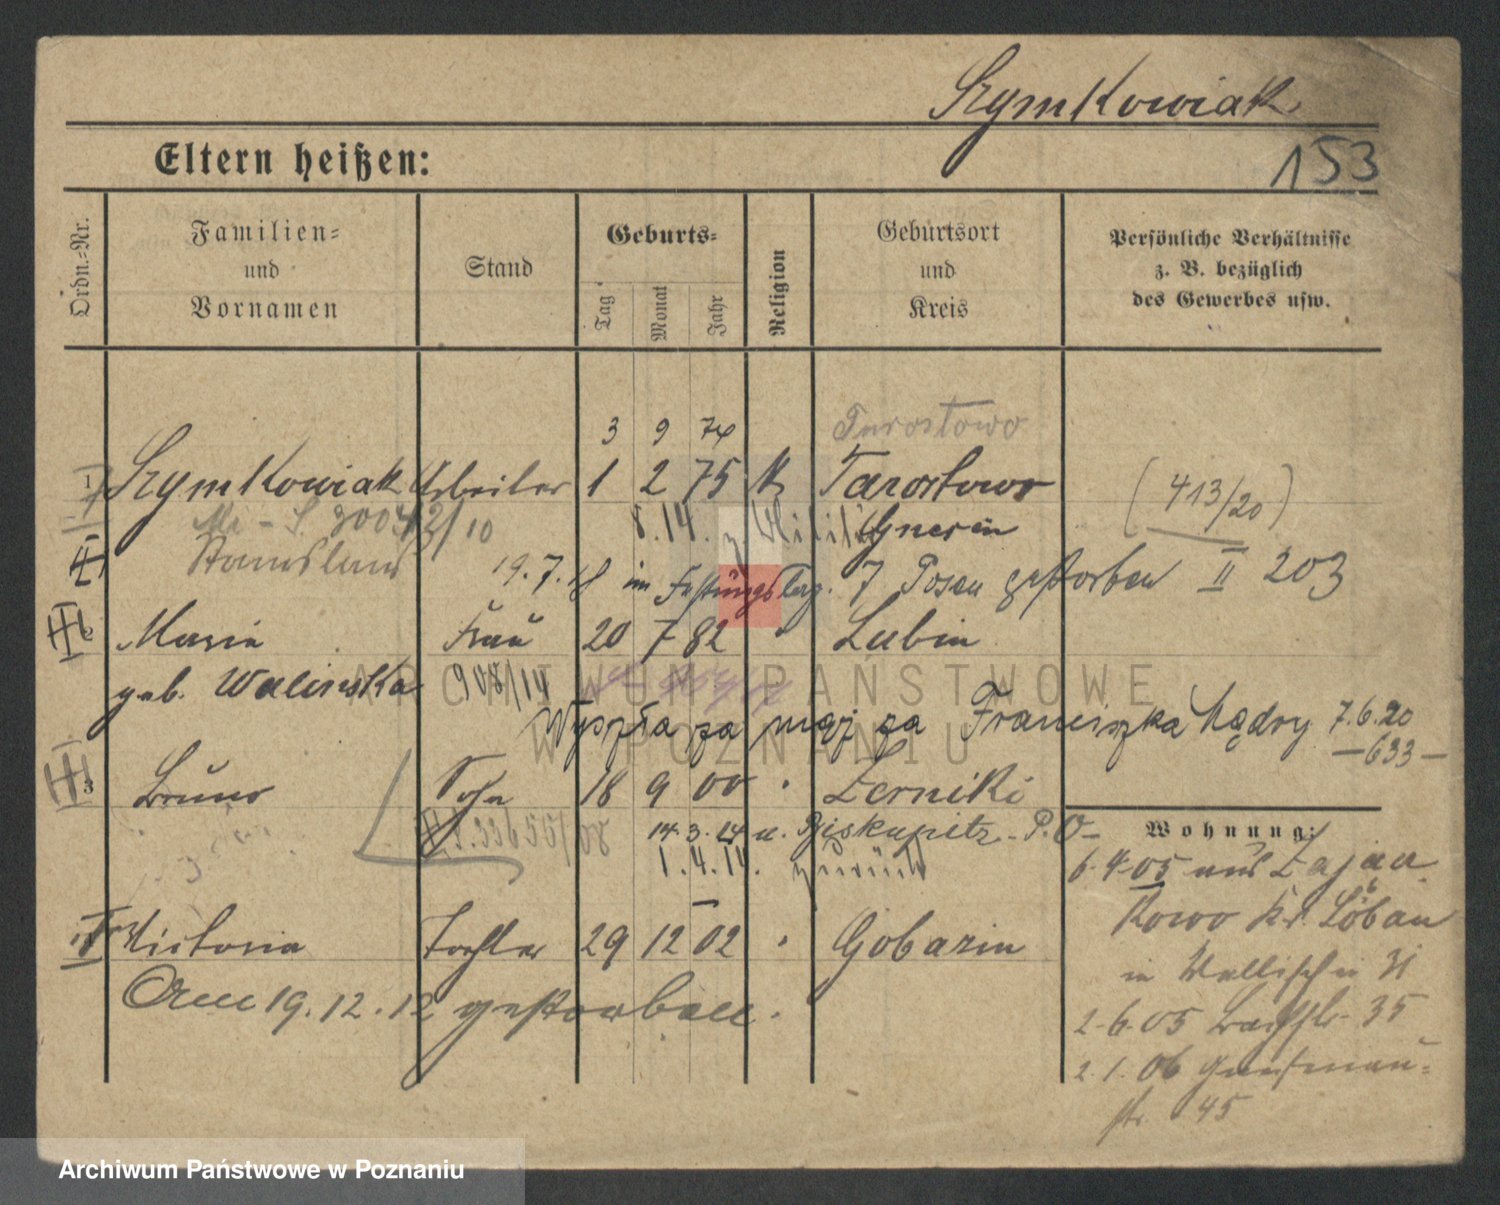 Szymkowiak
153
Eltern heißen:
Ordn.-Nr.
Familien-
und
Vornamen
Stand
Geburts-
Tag
Monat
Jahr
Religion
Geburtsort
und
Kreis
Persönliche Verhältnisse
z. B. bezüglich
des Gewerbes usw.
3 9 74 Turostowo
1 Szymkowiak Arbeiter 1 2 75 K Tarostowo
(413/20)
8.14. z. Militär Gnesen
Stanislaus
19.7.18 im Festungslaz. 7 Posen gestorben II 203
2 Maria Frau 20 7 82 " Lubin
geb. Walinska 908/14
Wyszła za mąż za Franciszka Mądry 7.6.20
– 633 –
3 Bruno Sohn 18 9 00 " Zerniki
14.3.14 n. Biskupitz - P.O-
1.4.14. zurück
Wohnung:
6.4.05 aus Zajacz
kowo Kr. Löbau
in Wallischei 31
2.6.05 35
2.1.06
str. 45
Victoria Tochter 29 12 02 " Gobarin
Am 19.12.12 gestorben.
ARCHIWUM PAŃSTWOWE
W POZNANIU
Archiwum Państwowe w Poznaniu